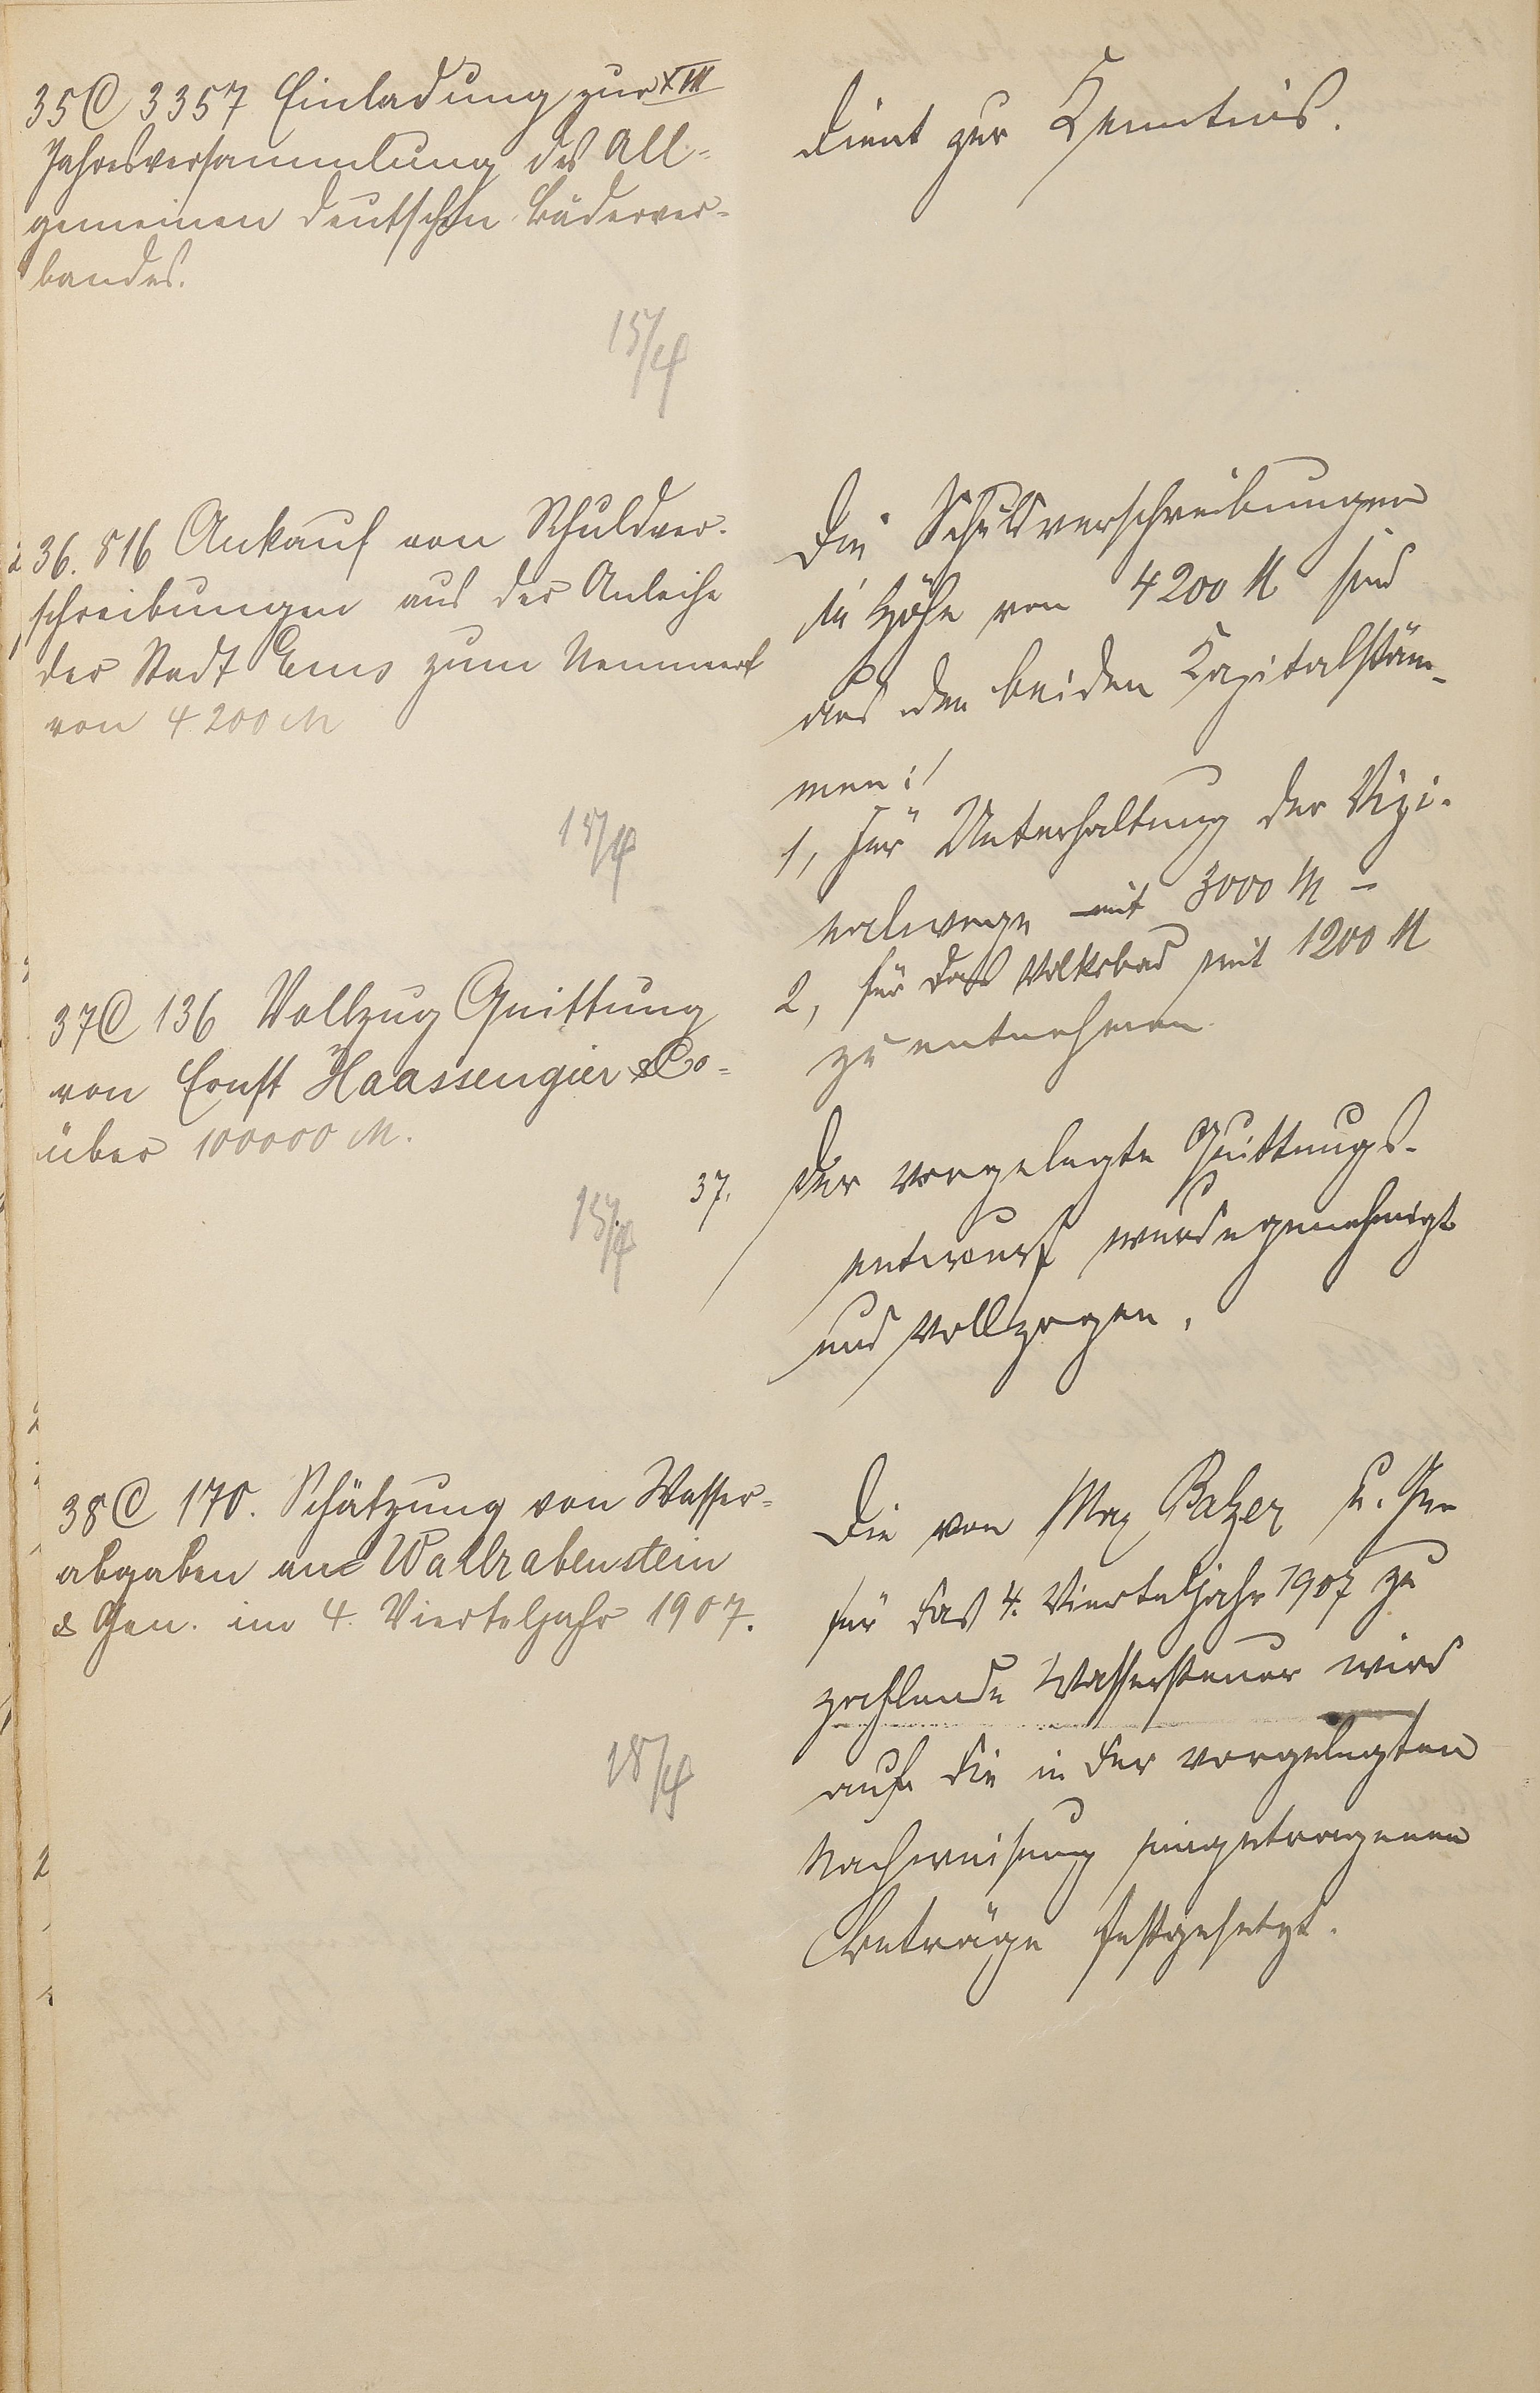 35C 3357 Einladung zur XIII
Jahresversammlung des All-
gemeinen deutschen Bäderver-
bandes.
15/4
dient zur Kenntnis.
36. 816 Ankauf von Schuldver-
schreibungen aus der Anleihe
der Stadt Ems zum Nennwert
von 4200 M
15/4
Die Schuldverschreibungen
in Höhe von 4200 M sind
aus den beiden Kapitalstäm-
men:
1, für Unterhaltung der Vizi-
nalwege mit 3000 M -
2, für das Volksbad mit 1200 M
zu entnehmen.
37C 136 Vollzug Quittung
von Ernst Haassengier & Co-
über 100000 M.
15/4
37. Der vorgelegte Quittungs-
entwurf wurde genehmigt
und vollzogen.
38C 170. Schätzung von Wasser-
abgaben an Wallrabenstein
& Gen. im 4. Vierteljahr 1907.
18/4
Die von Max Balzer u. Gen
für das 4. Vierteljahr 1907 zu
zahlende Wassersteuer wird
auf die in der vorgelegten
Nachweisung eingetragenen
Beträge festgesetzt.